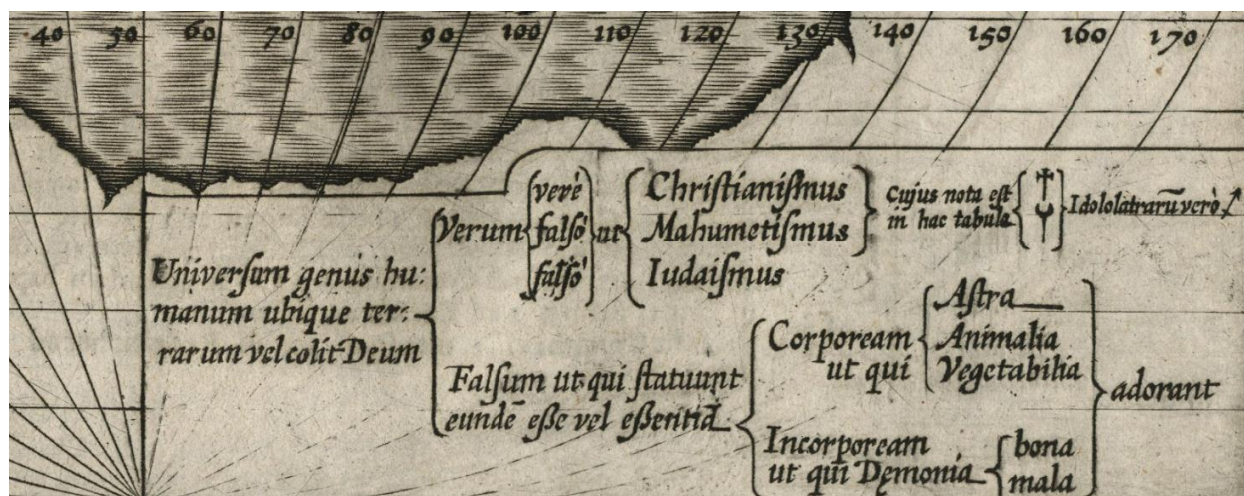 40 50 60 70 80 90 100 110 120 130 140 150 160 170
Univerſum genus hu:
manum ubique ter:
rarum vel colit Deum
Verum
verè
falſò
falſò
ut
Chriſtianiſmus
Mahumetiſmus
Iudaiſmus
Cujus nota eſt
in hac tabula
Idololatrarū verò
Falſum ut qui ſtatuunt
eundē eße vel eßentiā
Corpoream
ut qui
Aſtra
Animalia
Vegetabilia
Incorpoream
ut qui Dęmonia
bona
mala
adorant